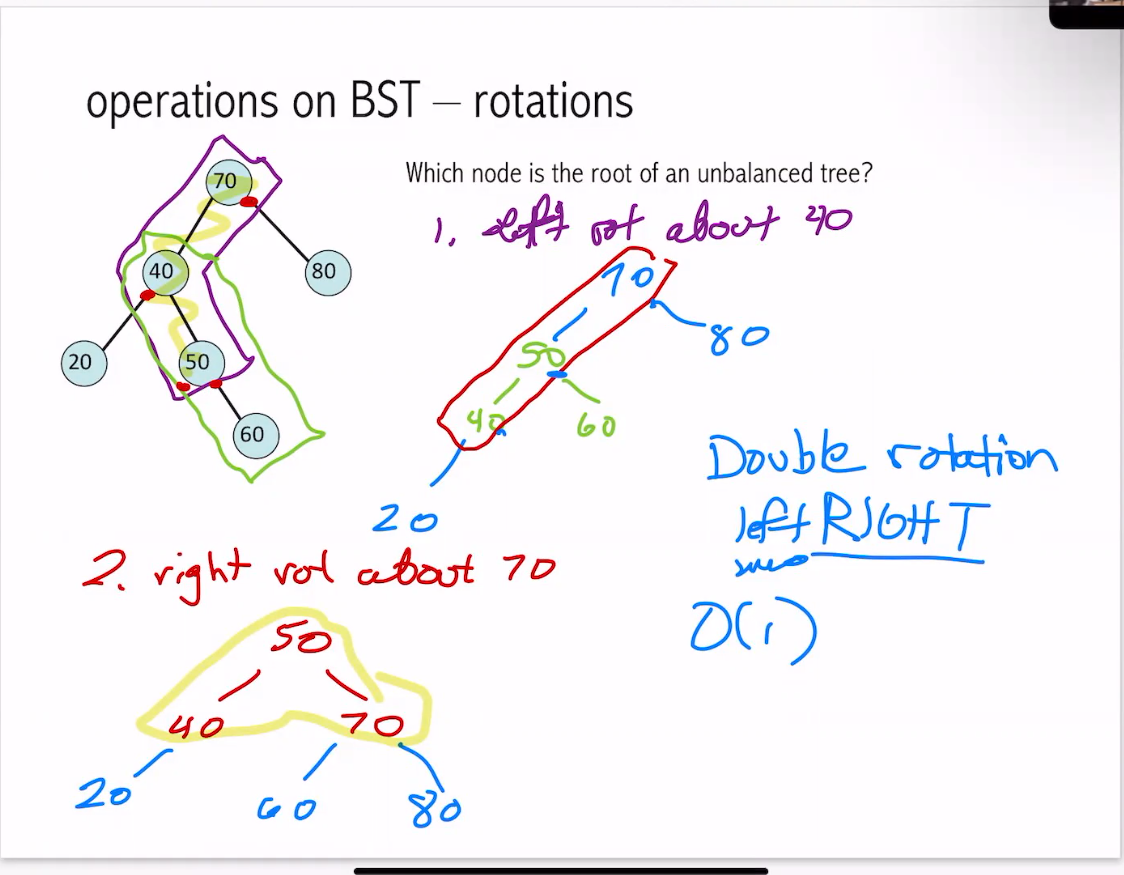 operations on BST – rotations
Which node is the root of an unbalanced tree?
1. left rot about 40
70
40
80
20
50
60
70
80
50
40
60
20
Double rotation
left RIGHT
O(1)
2. right rot about 70
50
40
70
20
60
80